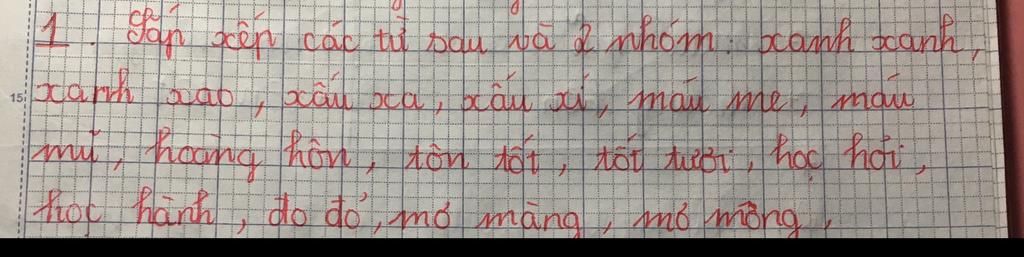 1. Sắp xếp các từ sau và 2 nhóm: xanh xanh,
15 xanh xao, xấu xa, xấu xí, máu me, máu
mủ, hoàng hôn, tôn tốt, tốt tươi, học hỏi,
học hành, đo đỏ, mơ màng, mơ mộng,